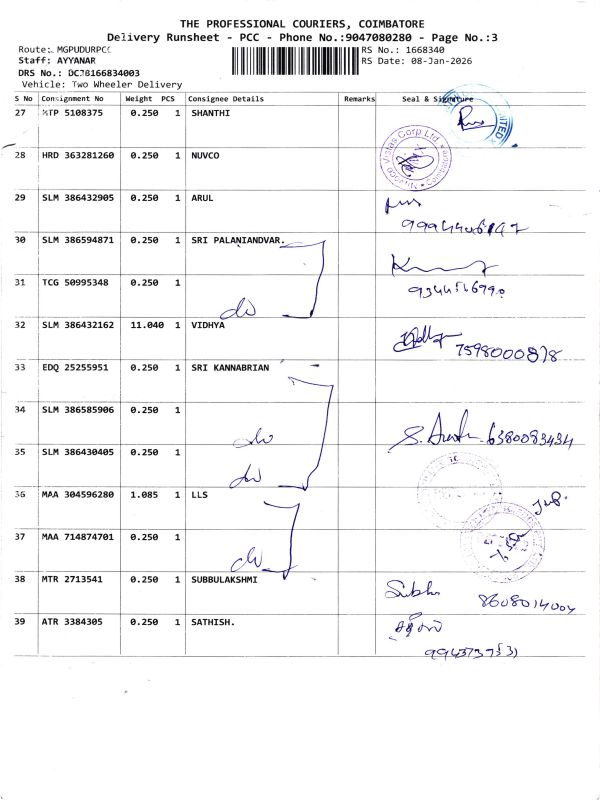 THE PROFESSIONAL COURIERS, COIMBATORE
Delivery Runsheet - PCC - Phone No.:9047080280 - Page No.:3
Route: MGPUDURPCC
RS No.: 1668340
Staff: AYYANAR
RS Date: 08-Jan-2026
DRS No.: DCJB166834003
Vehicle: Two Wheeler Delivery
S No Consignment No Weight PCS Consignee Details Remarks Seal & Signature
27 5108375 0.250 1 SHANTHI
28 HRD 363281260 0.250 1 NUVCO
Nuvoco Vistas Corp Ltd
29 SLM 386432905 0.250 1 ARUL
30 SLM 386594871 0.250 1 SRI PALANIANDVAR.
31 TCG 50995348 0.250 1
do
32 SLM 386432162 11.040 1 VIDHYA
7598000878
33 EDQ 25255951 0.250 1 SRI KANNABRIAN
34 SLM 386585906 0.250 1
do
6380083434
35 SLM 386430405 0.250 1
do
36 MAA 304596280 1.085 1 LLS
37 MAA 714874701 0.250 1
do
38 MTR 2713541 0.250 1 SUBBULAKSHMI
Subbu
8608014004
39 ATR 3384305 0.250 1 SATHISH.